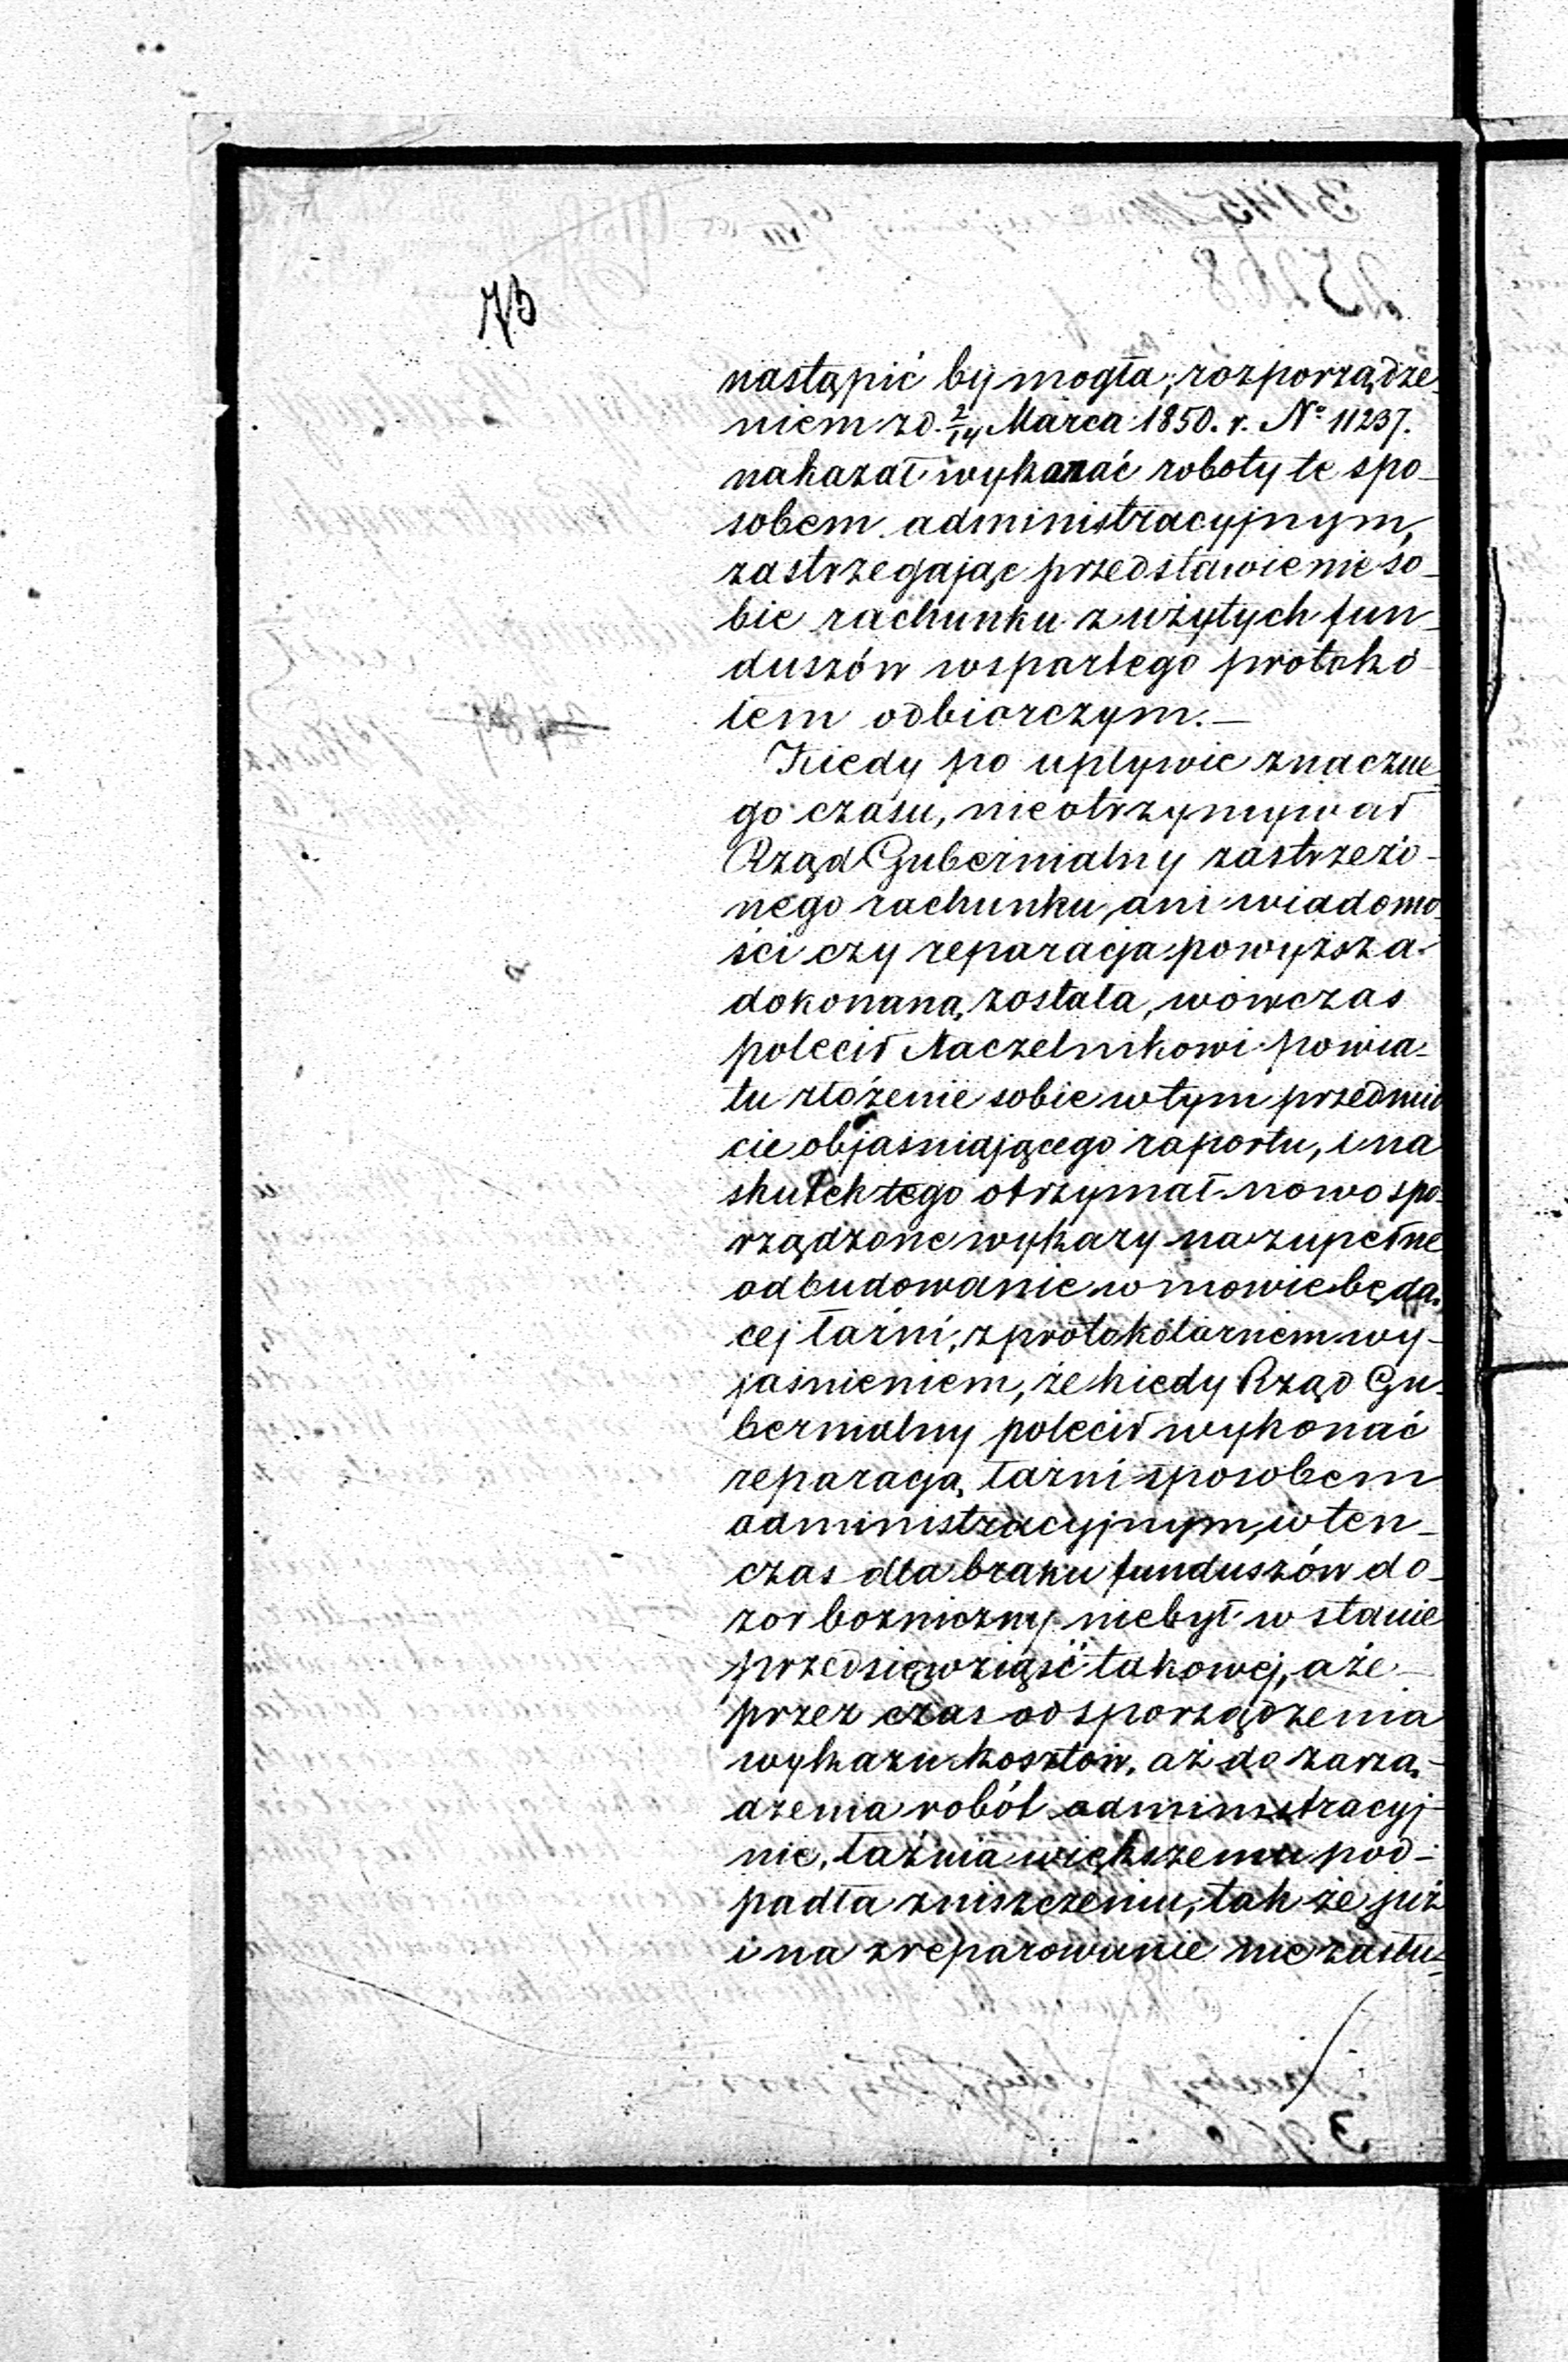 nastąpić by mogła, rozporządze-
niem z d. 2/14 Marca 1850. r. Nº 11237.
nakazał wykonać roboty te spo-
sobem administracyjnym,
zastrzegając przedstawienie so-
bie rachunku z użytych fun-
duszów wspartego protokó-
łem odbiorczym.—
Kiedy po upływie znaczne-
go czasu, nie otrzymywał
Rząd Gubernialny zastrzeżo-
nego rachunku, ani wiadomo-
ści czy reparacja powyższa
dokonaną została, wówczas
polecił Naczelnikowi powia-
tu złożenie sobie w tym przedmio
cie objaśniającego raportu, i na
skutek tego otrzymał nowo spo-
rządzone wykazy na zupełne
odbudowanie w mowie będą-
cej łaźni, z protokólarnem wy-
jaśnieniem, że kiedy Rząd Gu-
bernialny polecił wykonać
reparacją łaźni sposobem
administracyjnym, w ten-
czas dla braku funduszów do-
zór bożniczny niebył w stanie
przedsięwziąść takowej, a że
przez czas od sporządzenia
wykazu kosztów, aż do zarzą-
dzenia robót administracyj-
nie, łaźnia większemu pod-
padła zniszczeniu, tak że już
i na zreparowanie nie zasłu-